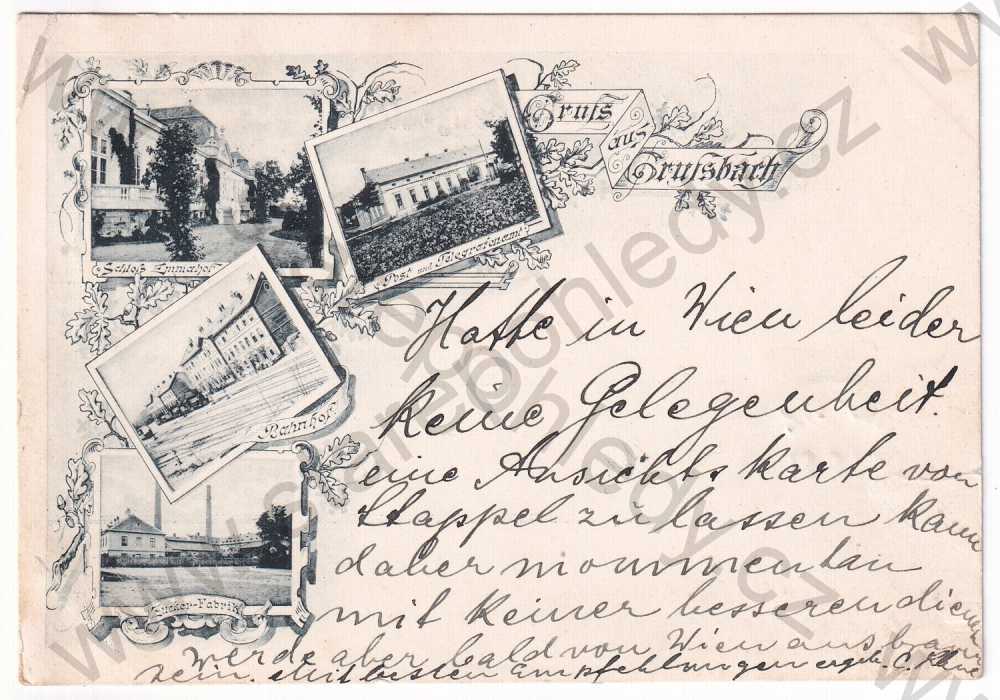 Gruß
aus
Grussbach
Schloß Emmahof
Post und Telegrafenamt
Bahnhof
Zucker-Fabrik
Hatte in Wien leider
keine Gelegenheit
eine Ansichtskarte von
Stappel zu lassen kann
daher mommentan
mit keiner besseren dienen
werde aber bald von Wien aus
sein. Mit besten Empfehlungen ergb. C.
www.starepohledy.cz